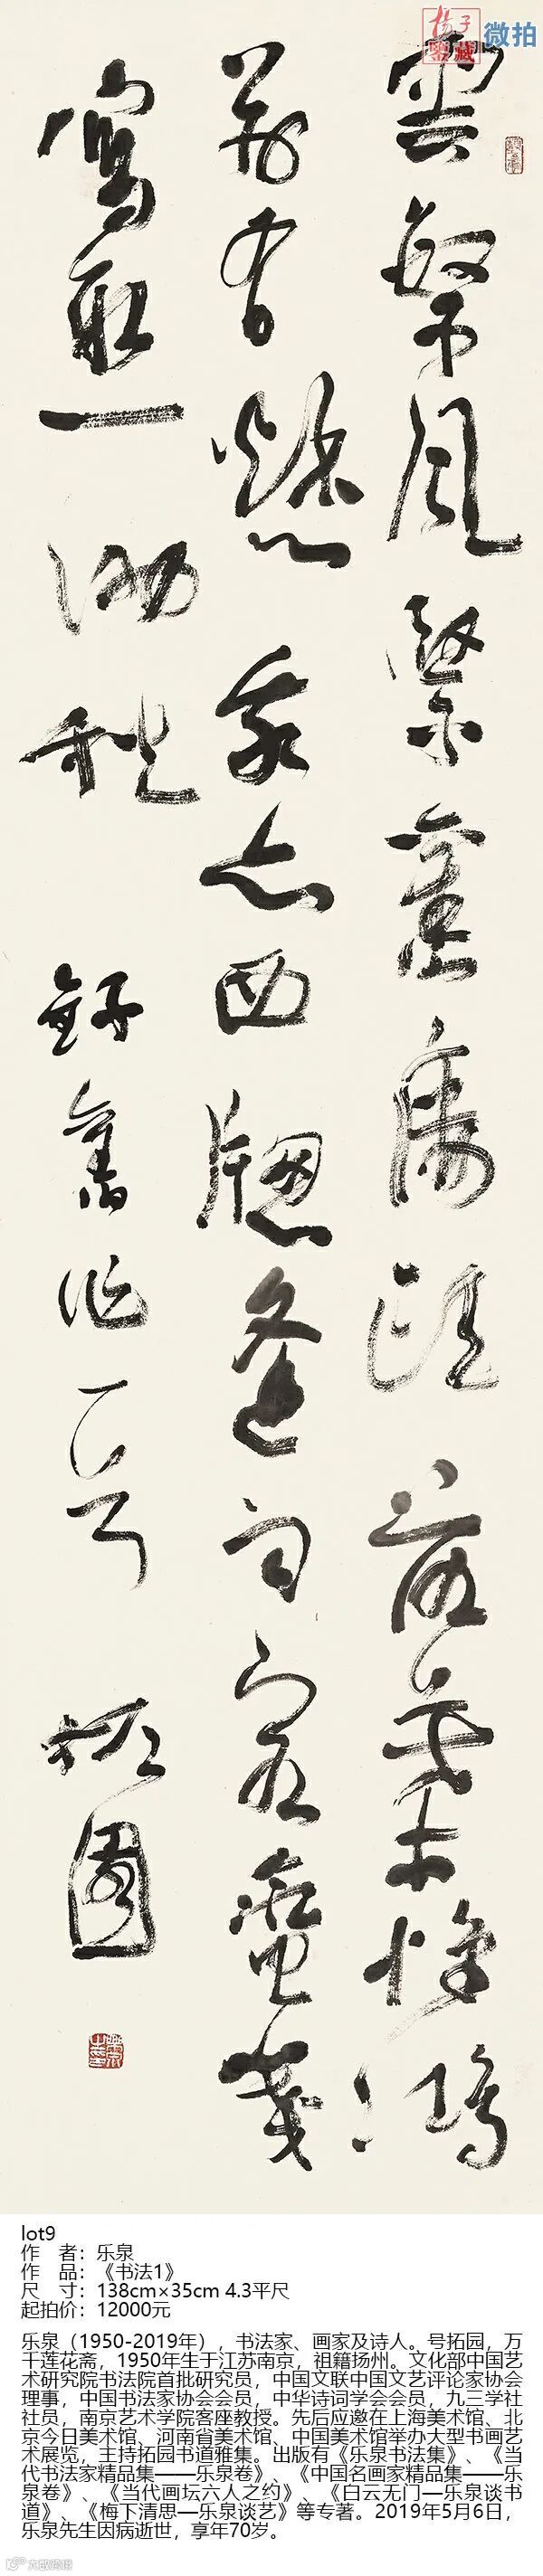 揚子鑒藏 微拍
雲繁風緊 落葉 鴻
有愁我亦西窗逢 蠻箋
寫取一湖秋 舊作一首 拓園
lot9
作 者：乐泉
作 品：《书法1》
尺 寸：138cm×35cm 4.3平尺
起拍价：12000元
乐泉（1950-2019年），书法家、画家及诗人。号拓园，万
千莲花斋，1950年生于江苏南京，祖籍扬州。文化部中国艺
术研究院书法院首批研究员，中国文联中国文艺评论家协会
理事，中国书法家协会会员，中华诗词学会会员，九三学社
社员，南京艺术学院客座教授。先后应邀在上海美术馆、北
京今日美术馆、河南省美术馆、中国美术馆举办大型书画艺
术展览，主持拓园书道雅集。出版有《乐泉书法集》、《当
代书法家精品集——乐泉卷》、《中国名画家精品集——乐
泉卷》、《当代画坛六人之约》、《白云无门—乐泉谈书
道》、《梅下清思—乐泉谈艺》等专著。2019年5月6日，
乐泉先生因病逝世，享年70岁。